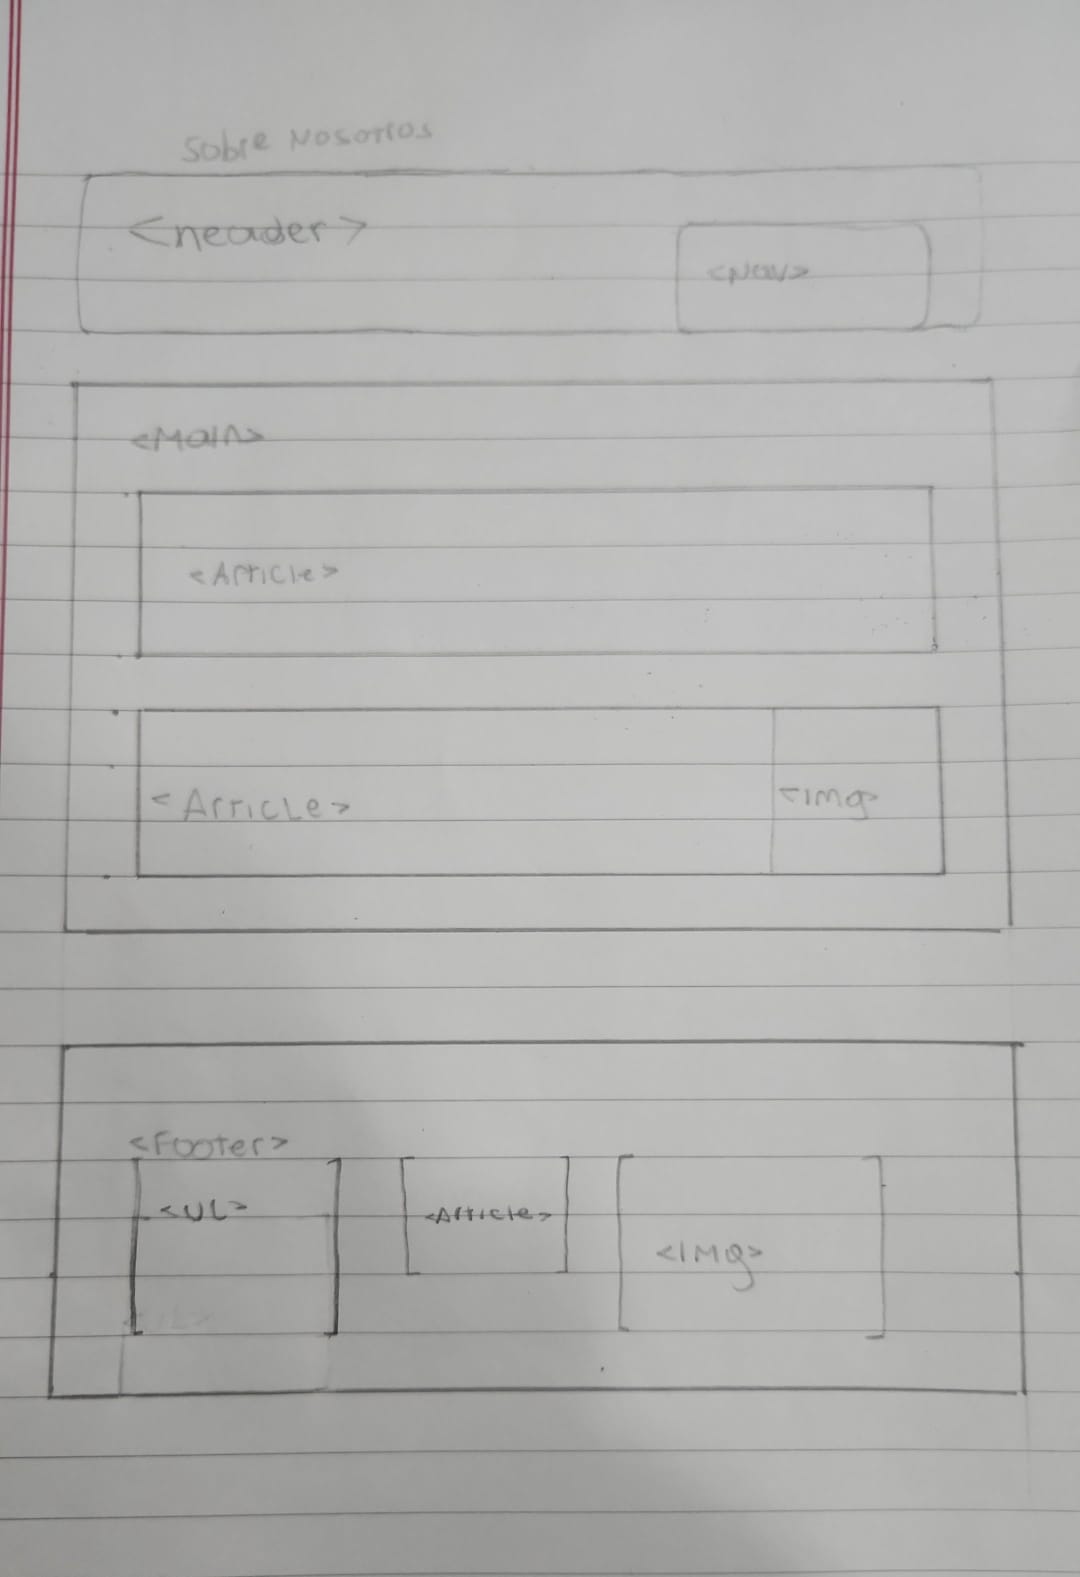 Sobre Nosotros
<header>
<Nav>
<Main>
<Article>
<Article>
<img>
<Footer>
<UL>
<Article>
<IMg>